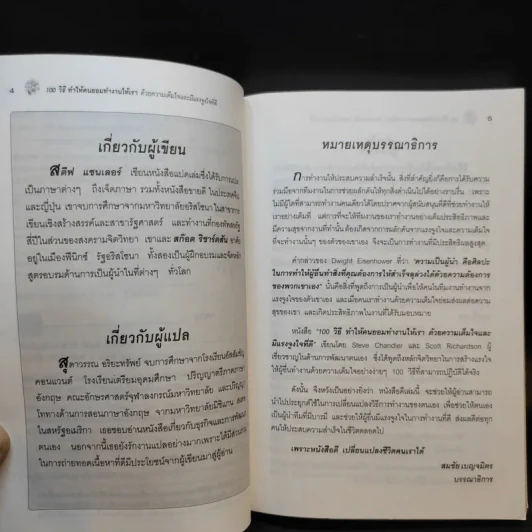 4
100 วิธี ทำให้คนยอมทำงานให้เรา ด้วยความเต็มใจและมีแรงจูงใจที่ดี
เกี่ยวกับผู้เขียน
สตีฟ แชนเลอร์ เขียนหนังสือแปดเล่มซึ่งได้รับการแปล
เป็นภาษาต่างๆ ถึงเจ็ดภาษา รวมทั้งหนังสือขายดี ในประเทศจีน
และญี่ปุ่น เขาจบการศึกษาจากมหาวิทยาลัยอริสโซนา ในสาขาการ
เขียนเชิงสร้างสรรค์และสาขารัฐศาสตร์ และทำงานที่กองทัพสหรัฐ
สี่ปีในส่วนของสงครามจิตวิทยา เขาและ สก๊อต ริชาร์ดสัน อาศัย
อยู่ในเมืองฟีนิกซ์ รัฐอริสโซนา ทั้งสองเป็นผู้ฝึกอบรมและจัดหลัก
สูตรอบรมด้านการเป็นผู้นำในที่ต่างๆ ทั่วโลก
เกี่ยวกับผู้แปล
สุดาวรรณ อริยะทรัพย์ จบการศึกษาจากโรงเรียนอัสสัมชัญ
คอนแวนต์ โรงเรียนเตรียมอุดมศึกษา ปริญญาตรีภาคภาษา
อังกฤษ คณะอักษรศาสตร์จุฬาลงกรณ์มหาวิทยาลัย และปริญญา
โททางด้านการสอนภาษาอังกฤษ จากมหาวิทยาลัยมิชิแกน สเตท
ในสหรัฐอเมริกา เธอชอบอ่านหนังสือเกี่ยวกับธุรกิจและการพัฒนา
ตนเอง นอกจากนี้เธอยังรักงานแปลอย่างมากเพราะได้มีส่วนร่วม
ในการถ่ายทอดเนื้อหาที่ดีมีประโยชน์จากผู้เขียนมาสู่ผู้อ่าน
5
หมายเหตุบรรณาธิการ
การทำงานให้ประสบความสำเร็จนั้น สิ่งที่สำคัญยิ่งก็คือการได้รับความ
ร่วมมือจากทีมงานในการช่วยผลักดันให้ทุกสิ่งดำเนินไปได้อย่างราบรื่น เพราะ
ไม่มีผู้ใดที่สามารถทำงานคนเดียวได้โดยปราศจากผู้สนับสนุนที่ดีที่ช่วยทำงานให้
เราอย่างเต็มที่ แต่การที่จะให้ทีมงานของเราทำงานอย่างเต็มประสิทธิภาพและ
มีความสุขจากงานที่ทำนั้น ต้องเกิดจากการผลักดันจากแรงจูงใจและความเต็มใจ
ที่จะทำงานนั้นๆ ของตัวของเขาเอง จึงจะเป็นการทำงานที่มีประสิทธิผลสูงสุด
คำกล่าวของ Dwight Eisenhower ที่ว่า "ความเป็นผู้นำ คือศิลปะ
ในการทำให้ผู้อื่นทำสิ่งที่คุณต้องการให้สำเร็จลุล่วงได้ด้วยความต้องการ
ของพวกเขาเอง" นั้นคือสิ่งที่พูดถึงการเป็นผู้นำเพื่อให้คนในทีมงานทำงานจาก
แรงจูงใจของตัวเขาเอง และเมื่อคนเราทำงานด้วยความเต็มใจย่อมส่งผลต่อความ
สุขของเขา และเกิดประสิทธิภาพในงานที่ได้รับมอบหมาย
หนังสือ "100 วิธี ทำให้คนยอมทำงานให้เรา ด้วยความเต็มใจและ
มีแรงจูงใจที่ดี" เขียนโดย Steve Chandler และ Scott Richardson ผู้
เชี่ยวชาญในด้านการพัฒนาตนเอง ซึ่งได้พูดถึงหลักจิตวิทยาในการสร้างแรงใจ
ให้ผู้อื่นทำงานให้เราด้วยความเต็มใจอย่างง่ายๆ 100 วิธีที่สามารถปฏิบัติได้จริง
ดังนั้น จึงหวังเป็นอย่างยิ่งว่า หนังสือดีเล่มนี้ จะช่วยให้ผู้อ่านสามารถ
นำไปประยุกต์ใช้ในการเปลี่ยนแปลงวิธีการทำงานของตนเอง เพื่อช่วยให้ตนเอง
เป็นผู้นำทีมที่มีบารมี และช่วยให้ผู้อื่นมีแรงจูงใจในการทำงานที่ดี ส่งผลดีต่อทุก
คนให้ประสบความสำเร็จในชีวิตตลอดไป
เพราะหนังสือดี เปลี่ยนแปลงชีวิตคนเราได้
สมชัย เบญจมิตร
บรรณาธิการ